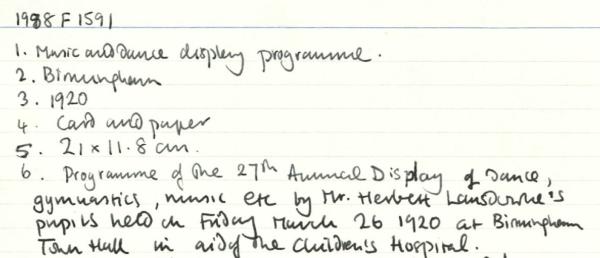 1988 F 1591
1. Music and Dance display programme.
2. Birmingham
3. 1920
4. Card and paper
5. 21 x 11.8 cm.
6. Programme of the 27th Annual Display of Dance,
gymnastics, music etc by Mr. Herbert Lansdowne's
pupils held on Friday March 26 1920 at Birmingham
Town Hall in aid of the Children's Hospital.